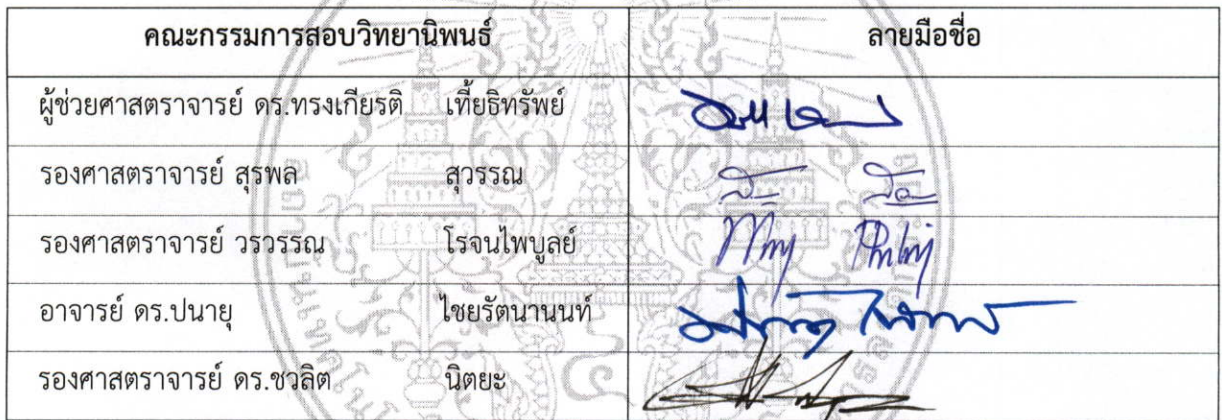 คณะกรรมการสอบวิทยานิพนธ์ ลายมือชื่อ
ผู้ช่วยศาสตราจารย์ ดร.ทรงเกียรติ เที้ยธิทรัพย์
รองศาสตราจารย์ สุรพล สุวรรณ
รองศาสตราจารย์ วรวรรณ โรจนไพบูลย์
อาจารย์ ดร.ปนายุ ไชยรัตนานนท์
รองศาสตราจารย์ ดร.ชวลิต นิตยะ